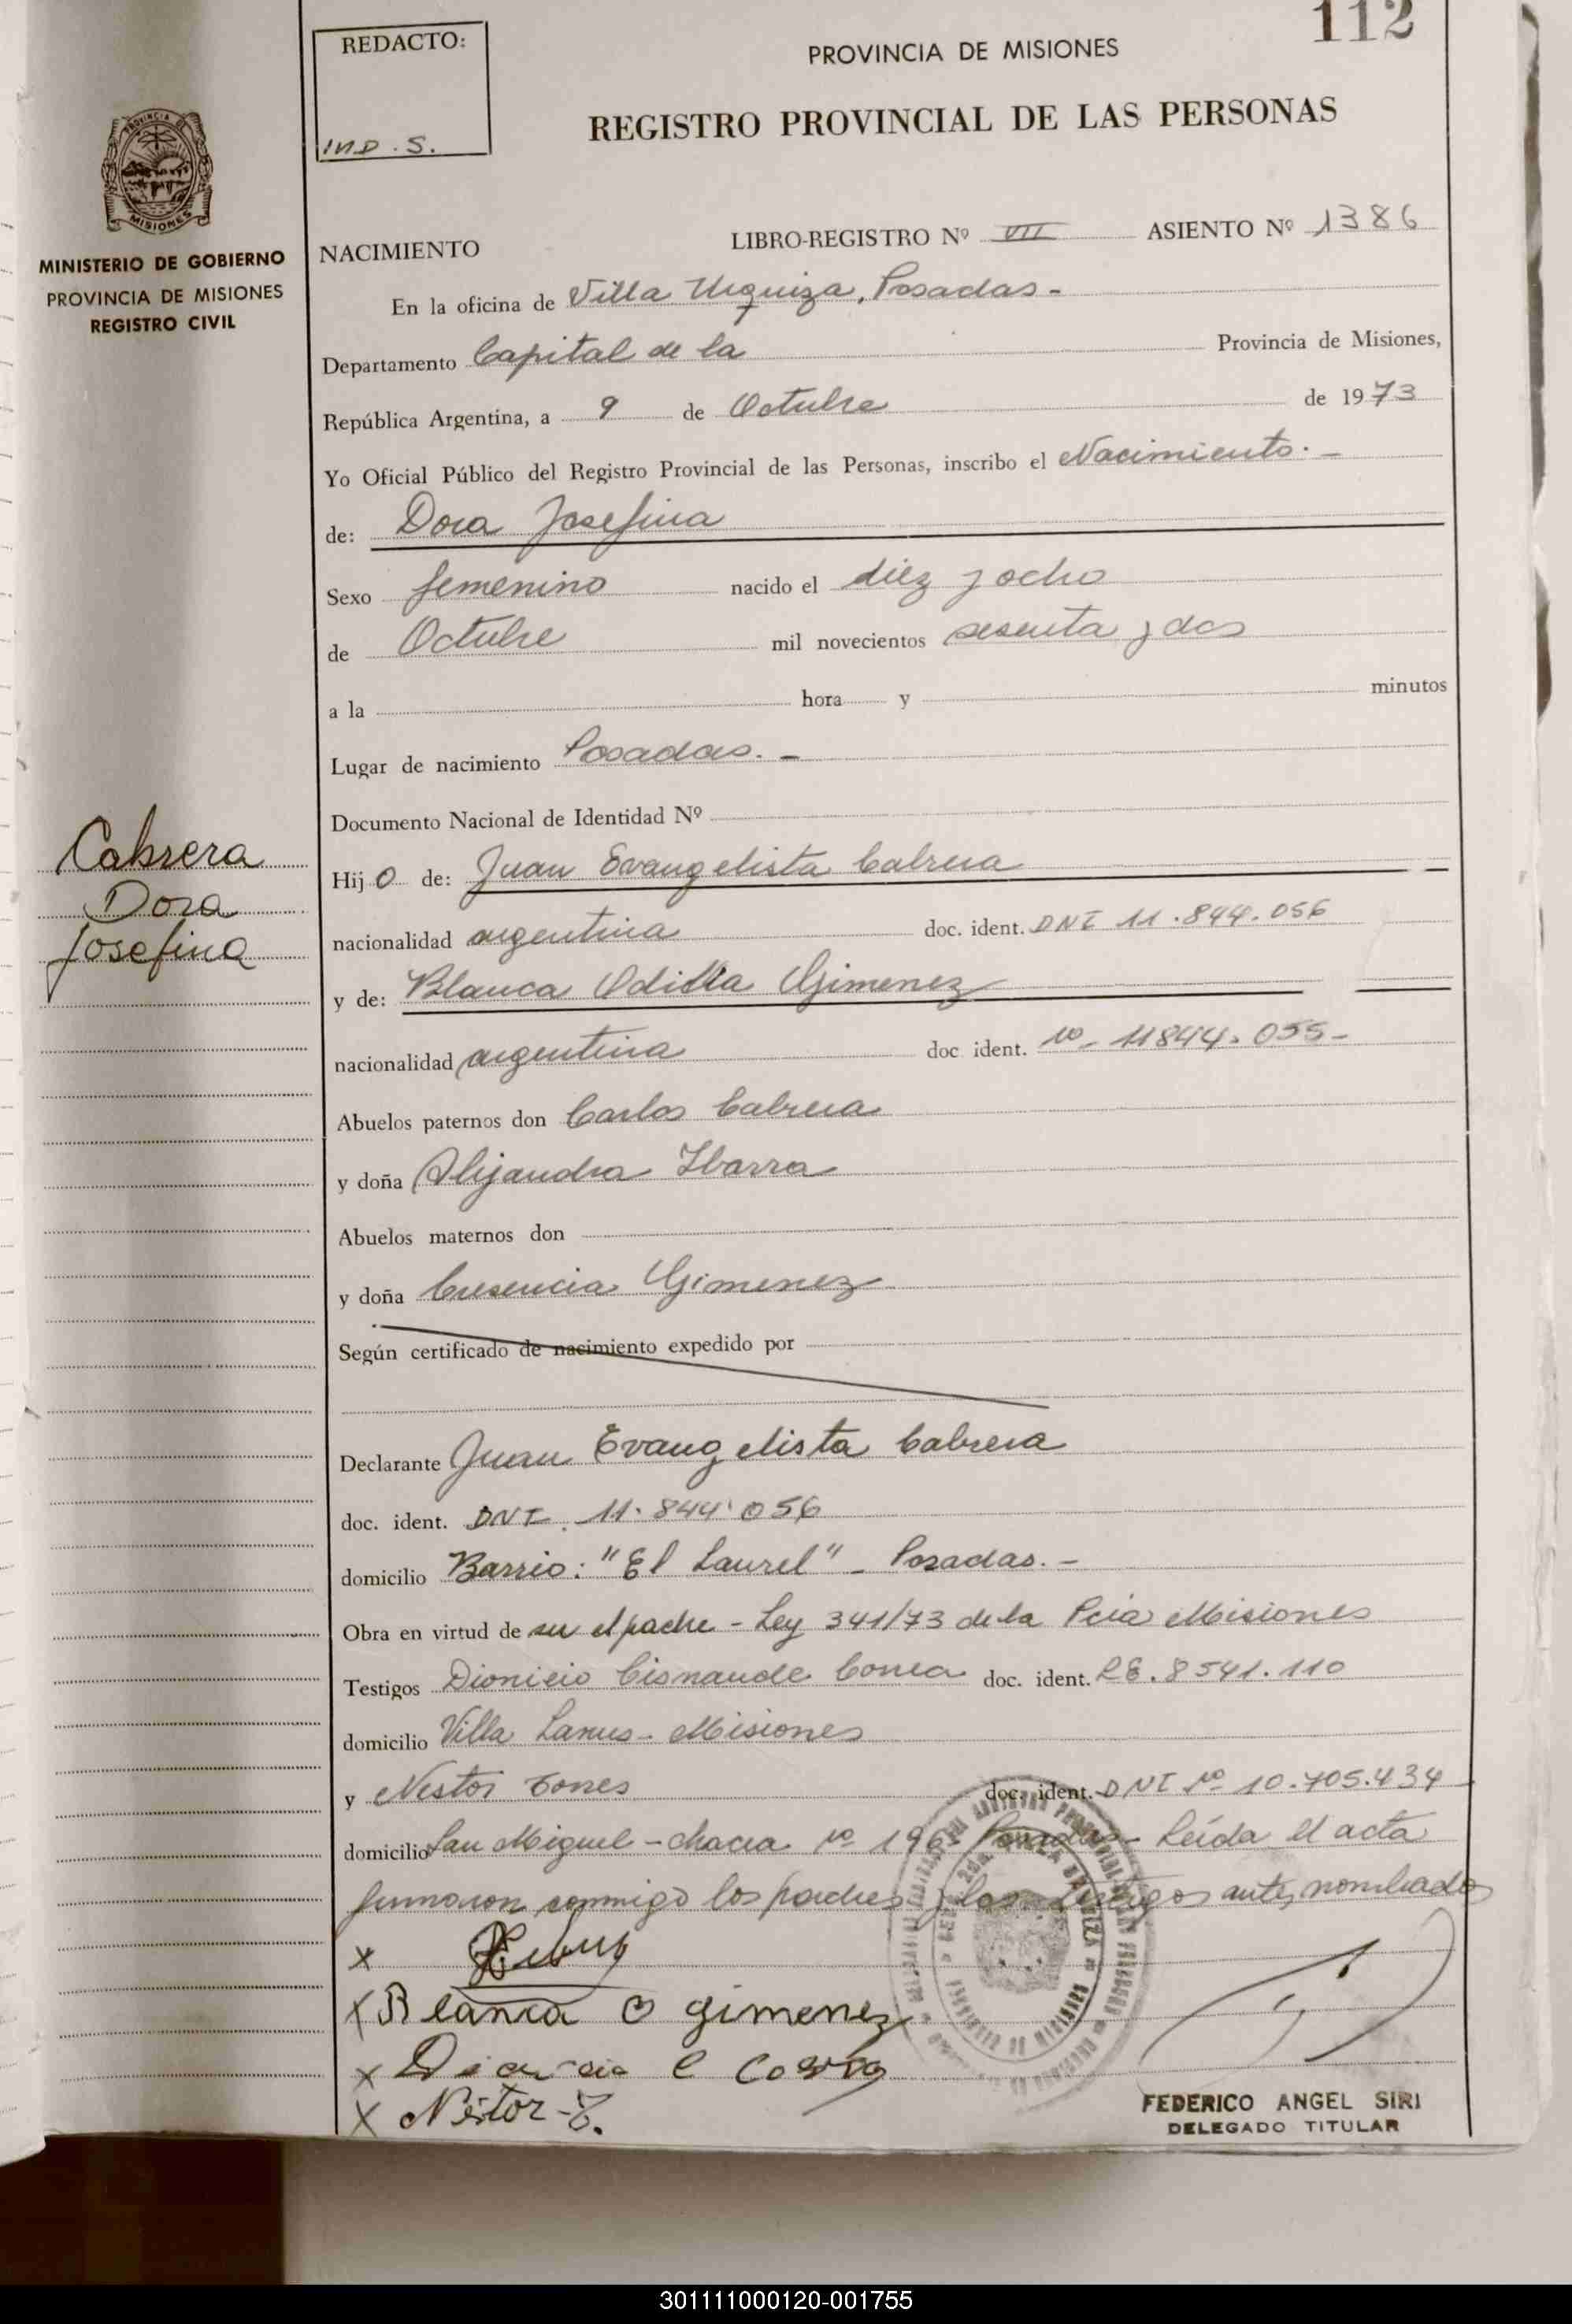 112
REDACTO:
IND. S.
PROVINCIA DE MISIONES
REGISTRO PROVINCIAL DE LAS PERSONAS
MISIONES
MINISTERIO DE GOBIERNO
PROVINCIA DE MISIONES
REGISTRO CIVIL
NACIMIENTO LIBRO-REGISTRO Nº VII ASIENTO Nº 1386
En la oficina de Villa Urquiza, Posadas-
Departamento Capital de la Provincia de Misiones,
República Argentina, a 9 de Octubre de 1973
Yo Oficial Público del Registro Provincial de las Personas, inscribo el Nacimiento.-
de: Dora Josefina
Sexo femenino nacido el diez y ocho
de Octubre mil novecientos sesenta y dos
a la hora y minutos
Lugar de nacimiento Posadas.-
Documento Nacional de Identidad Nº
Cabrera
Dora
Josefina
Hijo de: Juan Evangelista Cabrera
nacionalidad argentina doc. ident. DNI 11.844.056
y de: Blanca Odilla Gimenez
nacionalidad argentina doc ident. nº- 11844.055-
Abuelos paternos don Carlos Cabrera
y doña Alejandra Ibarra
Abuelos maternos don
y doña Cresencia Gimenez
Según certificado de nacimiento expedido por
Declarante Juan Evangelista Cabrera
doc. ident. DNI. 11.844.056
domicilio Barrio: "El Laurel" - Posadas.-
Obra en virtud de ser el padre - Ley 341/73 de la Pcia Misiones
Testigos Dionicio Correa doc. ident. LE.8541.110
domicilio Villa Lanus- Misiones
y Nestor Torres doc. ident. DNI Nº 10.705.434
domicilio San Miguel - chacra nº 196- Posadas- Leída el acta
firmaron conmigo los padres y los testigos antes nombrados
X
X Blanca O gimenez
X
X Néstor T.
FEDERICO ANGEL SIRI
DELEGADO TITULAR
301111000120-001755